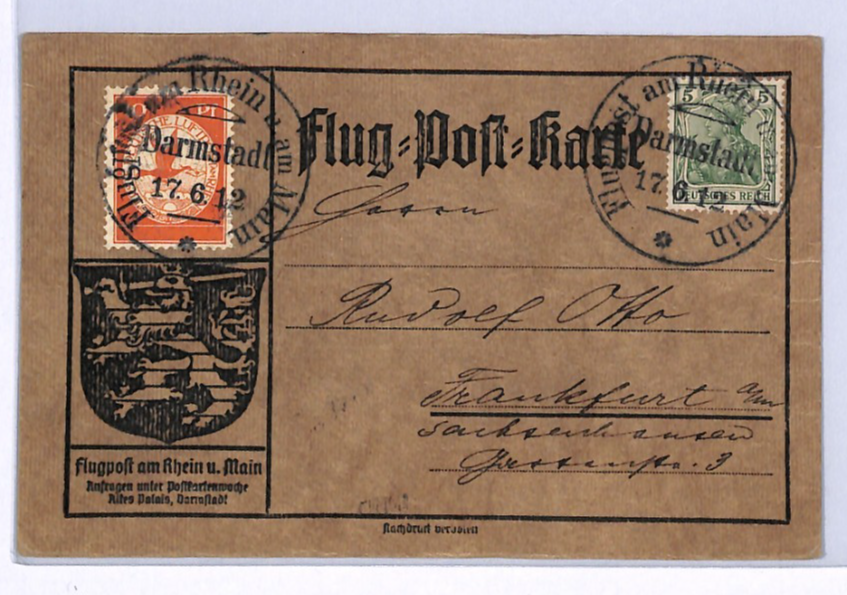 Flugpost am Rhein u. am Main
Darmstadt
17.6.12
Flug-Post-Karte
Flugpost am Rhein u. am Main
Darmstadt
17.6.12
5 5
DEUTSCHES REICH
Herrn
Rudolf Otto
Frankfurt a/m
Sachsenhausen
3
Flugpost am Rhein u. Main
Anfragen unter Postkartenwoche
Altes Palais, Darmstadt
Nachdruck verboten